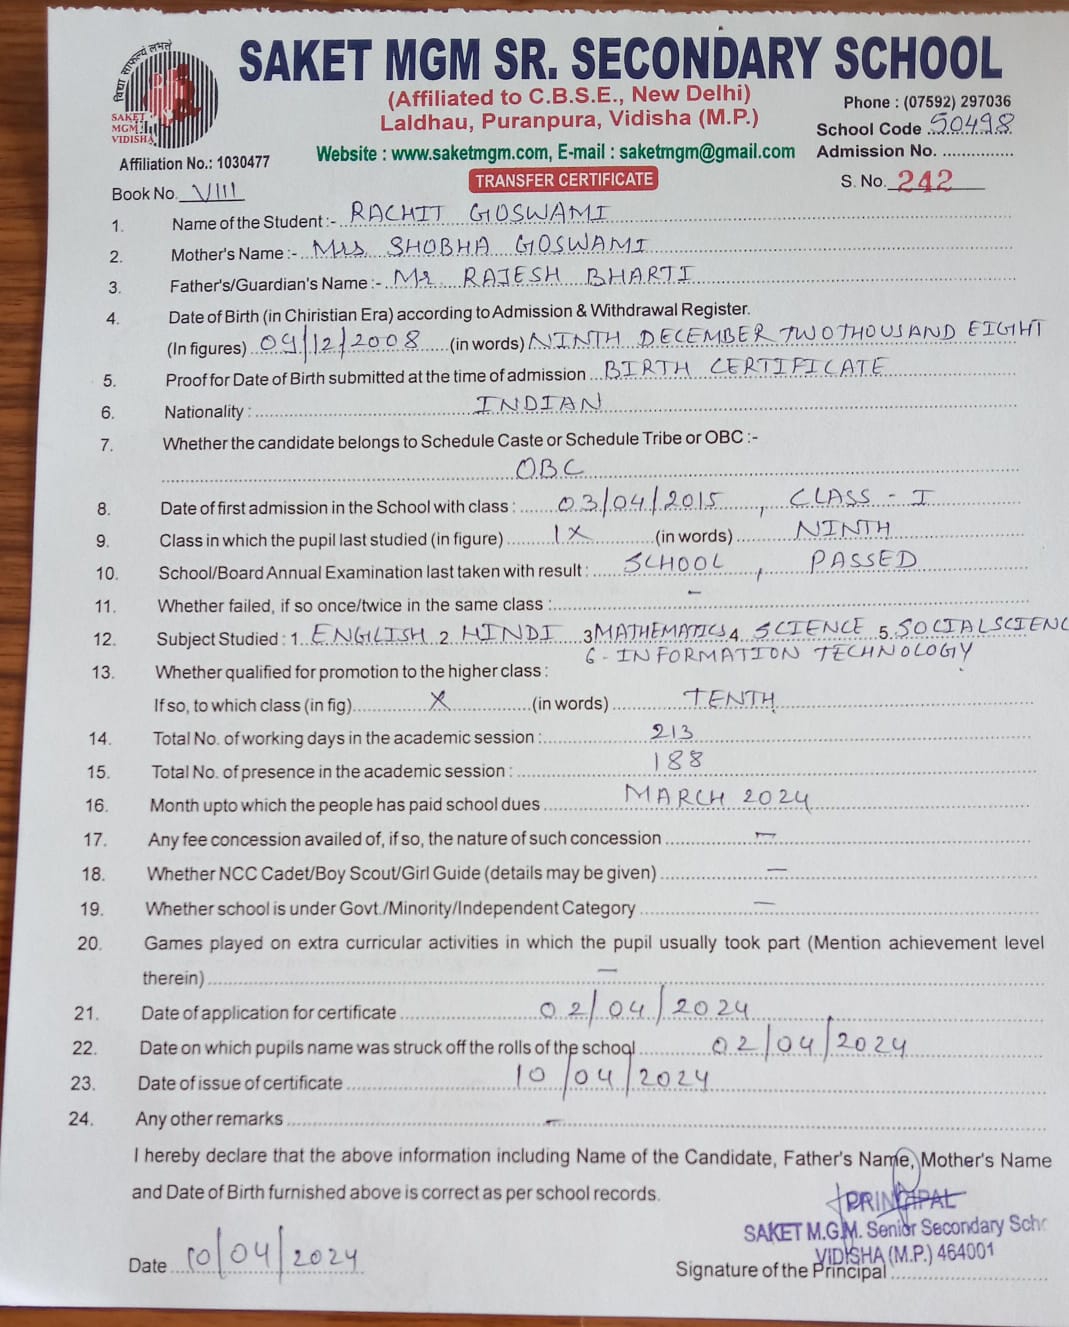 विद्या साफल्यं लभते
SAKET
MGM
VIDISHA
SAKET MGM SR. SECONDARY SCHOOL
(Affiliated to C.B.S.E., New Delhi)
Laldhau, Puranpura, Vidisha (M.P.)
Phone : (07592) 297036
School Code 50498
Affiliation No.: 1030477
Website : www.saketmgm.com, E-mail : saketmgm@gmail.com
Admission No. ...............
Book No. VIII
TRANSFER CERTIFICATE
S. No. 242
1. Name of the Student :- RACHIT GOSWAMI
2. Mother's Name :- Mrs. SHOBHA GOSWAMI
3. Father's/Guardian's Name :- Mr. RAJESH BHARTI
4. Date of Birth (in Chiristian Era) according to Admission & Withdrawal Register.
(In figures) 09/12/2008 (in words) NINTH DECEMBER TWO THOUSAND EIGHT
5. Proof for Date of Birth submitted at the time of admission BIRTH CERTIFICATE
6. Nationality : INDIAN
7. Whether the candidate belongs to Schedule Caste or Schedule Tribe or OBC :-
OBC
8. Date of first admission in the School with class : 03/04/2015, CLASS - I
9. Class in which the pupil last studied (in figure) IX (in words) NINTH
10. School/Board Annual Examination last taken with result : SCHOOL, PASSED
11. Whether failed, if so once/twice in the same class : –
12. Subject Studied : 1. ENGLISH 2. HINDI 3 MATHEMATICS 4. SCIENCE 5. SOCIAL SCIENC
6 - INFORMATION TECHNOLOGY
13. Whether qualified for promotion to the higher class :
If so, to which class (in fig) X (in words) TENTH
14. Total No. of working days in the academic session : 213
15. Total No. of presence in the academic session : 188
16. Month upto which the people has paid school dues MARCH 2024
17. Any fee concession availed of, if so, the nature of such concession –
18. Whether NCC Cadet/Boy Scout/Girl Guide (details may be given) –
19. Whether school is under Govt./Minority/Independent Category –
20. Games played on extra curricular activities in which the pupil usually took part (Mention achievement level
therein) –
21. Date of application for certificate 02/04/2024
22. Date on which pupils name was struck off the rolls of the school 02/04/2024
23. Date of issue of certificate 10/04/2024
24. Any other remarks –
I hereby declare that the above information including Name of the Candidate, Father's Name, Mother's Name
and Date of Birth furnished above is correct as per school records.
PRINCIPAL
SAKET M.G.M. Senior Secondary Scho
VIDISHA (M.P.) 464001
Date 10/04/2024
Signature of the Principal